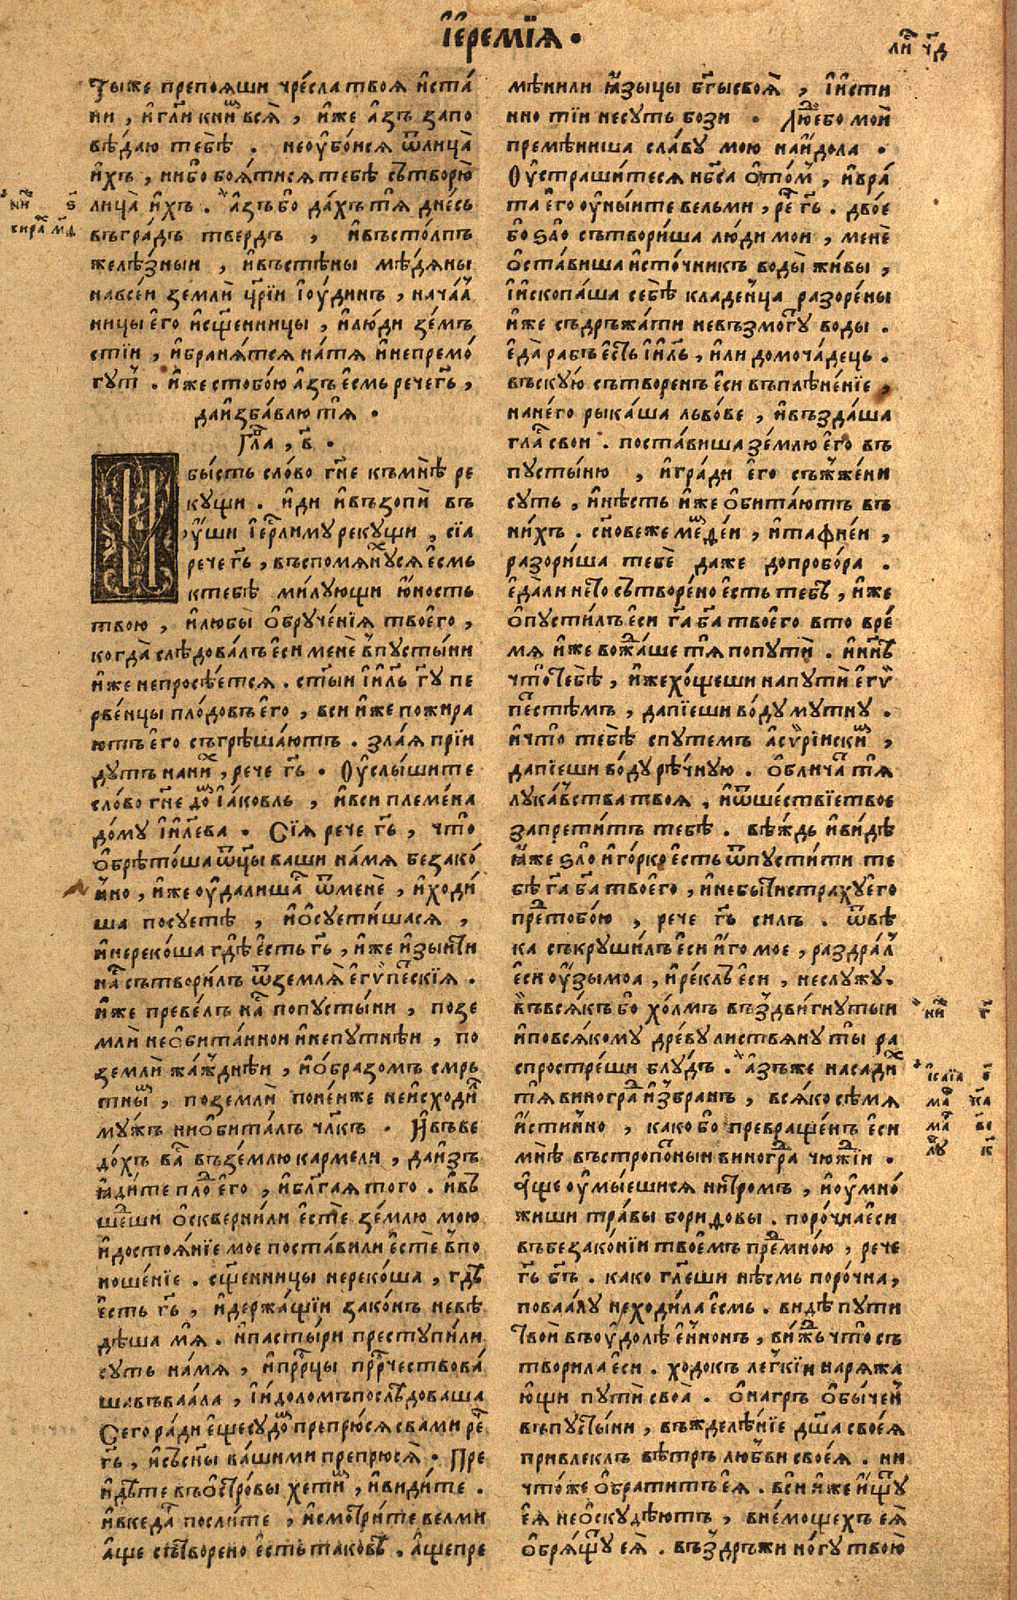 І҆еремїѧ •
ли҃ч҃д
Ты же препоѧши чре́сла твоѧ̀ и҆ста́
ни , и҆гл҃и книⷨ всѧ̀ , и҆же а҆зъ запо
вѣ́даю тебѣ̀ . неоу҆бо́исѧ ѿлица̀
и҆хъ , нибо боѧ́тисѧ тебѣ̀ сътворю̀
лица̀ и҆хъ . а҆зъ бо да́хъ тѧ̀ дне́сь
въгра́дъ твердъ , и҆въсто́лпъ
желѣ́зныи , и҆въстѣ́ны мѣ́дѧны
навсе́и землѝ цр҃їи і҆ю́динъ , нача́л
ницы е҆го̀ и҆сщ҃енницы , и҆лю́ди зе́мъ
стїи , и҆бранѧ́тсѧ на́тѧ и҆непремо́
гутⷭ . и҆же стобо́ю а҆зъ е҆смь рече гь҃ ,
даи҆зба́влю тѧ̀ •
Гл҃а , в҃ .
бы́сть сло́во гн҃е къмнѣ̀ ре
кущи . и҆ди и҆възопѝ въ
у҆́ши і҆ер҃лиму рекущи , сїа
рече гь҃ , въспомѧнуⷯсѧ е҆смь
ктебѣ̀ ми́лующи ю҆ность
твою , и҆любы̀ о҆бруче́нїѧ твоего̀ ,
когда̀ слѣ́довалъ е҆си менѐ в̾пусты́ни
и҆же непросѣ́етсѧ . ст҃ыи і҆и҃ль гу҃ пе
рве́нцы пло́довъ е҆го̀ , вси и҆же пожира
ютъ е҆го̀ съгрѣша́ютъ . зла́ѧ прїи
дутъ нани́ⷯ , рече гь҃ . Оу҆слы́шите
сло́во гн҃е доⷨ і҆а́ковль , и҆вси племе́на
до́му і҆и҃лева . Сїѧ рече гь҃ , что̀
о҆брѣто́ша ѿц҃ы ваши на́мѧ безако́
нно , и҆же оу҆далишаⷭ ѿменѐ , и҆ходи́
ша посуетѣ̀ , и҆о҆суети́шасѧ ,
и҆нереко́ша гдѣ̀ е҆сть гь҃ , и҆же и҆зыити
наⷭ сътвори́лъ ѿземлѧ̀ е҆гѵ́пеⷭкїѧ .
и҆же преве́лъ наⷭ попусты́ни , позе
млѝ нео҆бита́ннои и҆непутнѣ́и , по
землѝ жа́ждніѣи , и҆о҆бразомъ смрь
тныⷨ , поземлѝ поне́нже неи҆сходи́ⷮ
му́жъ ни о҆бита́лъ чл҃къ . и҆въве
до́хъ ваⷭ въземлю кармели , даи҆зъ
ꙗ҆ди́те плоⷣ е҆го̀ , и҆бл҃гаѧ того . и҆въ
шеⷣши о҆скверни́ли е҆стѐ зе́млю мою
и҆достоѧ́нїе мое поста́вили е҆стѐ в̾по
ноше́нїе . сщ҃енницы нереко́ша , гдѣ̀
е҆сть гь҃ , и҆держа́щїи зако́нъ невѣ́
дѣша мѧ̀ . и҆пасты́ри преступи́ли
суть на́мѧ , и҆прⷪ҇рцы прⷪ҇рчествова́
ша въваа́ла , і҆и҆доломъ послѣ́доваша
Сего ра́ди е҆ще судоⷨ препрю́сѧ свами реⷱ
гь҃ , и҆съсн҃ы ва́шими препрюсѧ̀ . Пре
и҆дѣ́те въо҆стро́вы хети́ⷨ , и҆ви́дите .
и҆вкеда́ⷬ посли́те , и҆смотри́те велми
а҆ще сътворено е҆сть таковѣ̀ . а҆щепре
мѣнили ꙗ҆зыцы бг҃ы своѧ̀ , і҆и҆сти
нно ти́и несуть бози . Лю́дⷣ ебо мои̏
премѣни́ша сла́ву мою наи҆дола .
Оу҆страши́тесѧ нб҃са о҆то́мⷨ , и҆вра́
та е҆го̀ оу҆ны́ите вельми , реⷱ гь҃ . дво́е
бо ѕло̀ сътвори́ша лю́ди мои , менѐ
о҆ста́виша и҆сто́чникъ воды̀ жи́вы ,
і҆и҆скопа́ша себѣ̀ кладе́нца разоре́ны
и҆же съдръжа́ти невъзмогу воды .
е҆да̀ рабъ е҆сть і҆и҃ль , и҆ли домоча́дець .
въскую̀ сътворенъ е҆си въплѣне́нїе ,
нане́го рыка́ша льво́ве , и҆възда́ша
глаⷭ свои . поста́виша зе́млю е҆го̀ въ
пусты́ню , и҆гради е҆го̀ съжже́ни
суть , и҆нѣ́сть и҆же о҆бита́ютъ въ
ни́хъ . сн҃овеже меⷨде́и , и҆тафне́и ,
разори́ша тебѐ даже допробо́ра .
е҆да́ли не то̀ сътворе́но е҆сть тебѣ̀ , и҆же
о҆пусти́лъ е҆си га҃ ба҃ твоего вто вре́
мѧ и҆же воⷤа́ше тѧ̀ попутѝ . и҆ни҃ѣ
что̀ тебѣ̀ , и҆же хо́щеши напутѝ е҆гѵ
пеⷭстѣмъ , дапїе́ши во́ду мутну .
и҆что̀ тебѣ̀ спутемъ а҆сѵ́рїискиⷨ ,
дапїе́ши во́ду рѣ́чную . о҆блича́ⷮ тѧ̀
лука́вства твоѧ , и҆ѿше́ствїе твое
запрети́тъ тебѣ̀ . вѣ́ждь и҆ви́дѣ
ꙗ҆́же ѕло̀ и҆го́рко е҆сть ѿпусти́ти те
бѣ̀ га҃ ба҃ твоего̀ , и҆небы́ти страху е҆го̀
преⷣ тобо́ю , рече гь҃ силъ . ѿвѣ́
ка съкруши́лъ е҆си и҆́го мое , раздра́л
е҆си оу҆́зы моа , и҆ре́клъ е҆си , неслужу .
въвсѧ́къ бо хо́лмъ въздви́гнутыи
и҆повсѧ́кому дре́ву листвѧ́ну ты̀ ра
спростре́ши блудъ . а҆зъже насади́ⷯ
тѧ̀ виногра́ⷣ и҆збранъ , всѧ́ко сѣ́мѧ
и҆стинно , како бо превраще́нъ е҆си
мнѣ̀ въстро́пныи виногра́ⷣ чюжїи .
А҆ще оу҆мы́ешисѧ нитромъ , и҆оу҆мно́
жиши тра́вы боридовы . поро́чна е҆си
въбезако́нїи твоемъ преⷣ мно́ю , рече
гь҃ бг҃ъ . како гл҃еши нѣ́смь поро́чна ,
поваа́лу неходи́ла е҆смь . видѣ̀ пути
твои̏ въоу҆долѣ е҆нномъ , ви́жⷣь что съ
твори́ла е҆си . ходокъ легкїи наря́жа
ю҆щи путѝ своа . о҆нагръ о҆бы́чен
въпусты́ни , въжделѣ́нїе дш҃а своеѧ̀
привлеклъ вѣ́тръ любви своеѧ̀ . ни
что́же о҆брати́тъ е҆ѧ̀ . вси и҆же и҆щу
е҆ѧ̀ нео҆скудѣ́ютъ , вне́мощехъ е҆ѧ̀
о҆брѧ́щу е҆ѧ̀ . въздръжи но́гу твою̀